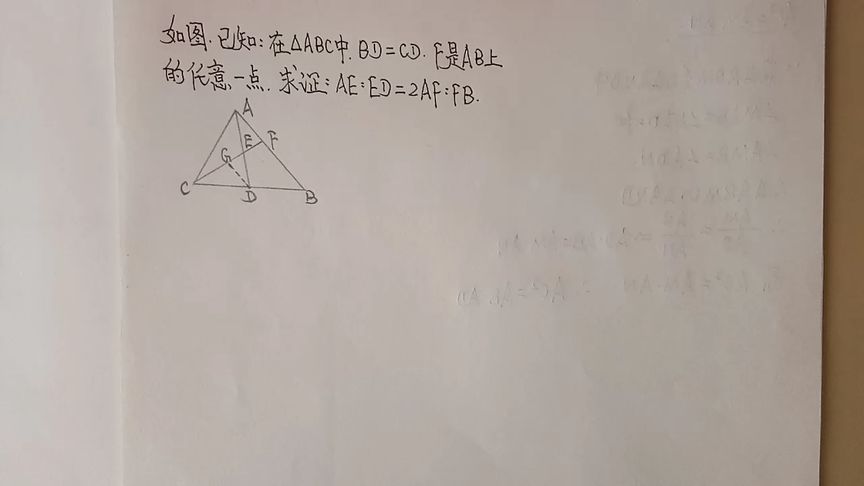 如图.已知:在△ABC中.BD=CD.F是AB上
的任意一点.求证:AE:ED=2AF:FB.
A
E F
G
C D B